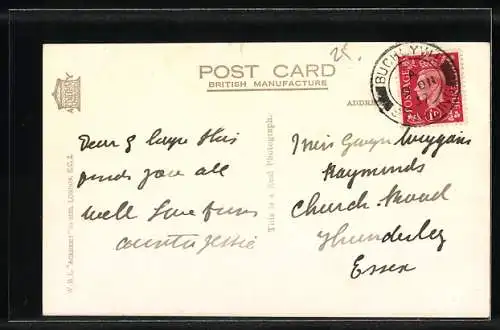 25
POST CARD
BRITISH MANUFACTURE
BUCHLYVIE
POSTAGE
ADDRE
Dear G hope this
finds you all
well Love from
auntie Jessie
This is a Real Photograph.
Miss Gwyn
Raymonds
Church Road
Thundersley
Essex
LONDON, E.C.2.